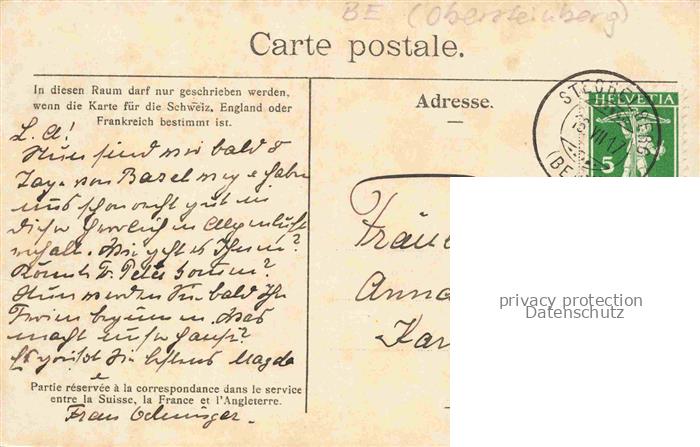 BE (Obersteinberg)
Carte postale.
In diesen Raum darf nur geschrieben werden,
wenn die Karte für die Schweiz, England oder
Frankreich bestimmt ist.
Adresse.
STECHELBERG
(BE
HELVETIA
5
L. A!
Nun sind wir bald 8
Tage von Basel weg & haben
uns schon recht gut in
dieser herrlichen Alpenluft
erholt. Wie geht es Ihnen?
Könnte Peter kommen?
Nun werden Sie bald Ihre
Ferien beginnen. Was
macht unser Haus?
Es grüsst Sie bestens Magda
Partie réservée à la correspondance dans le service
entre la Suisse, la France et l'Angleterre.
Frau
Anna
privacy protection
Datenschutz